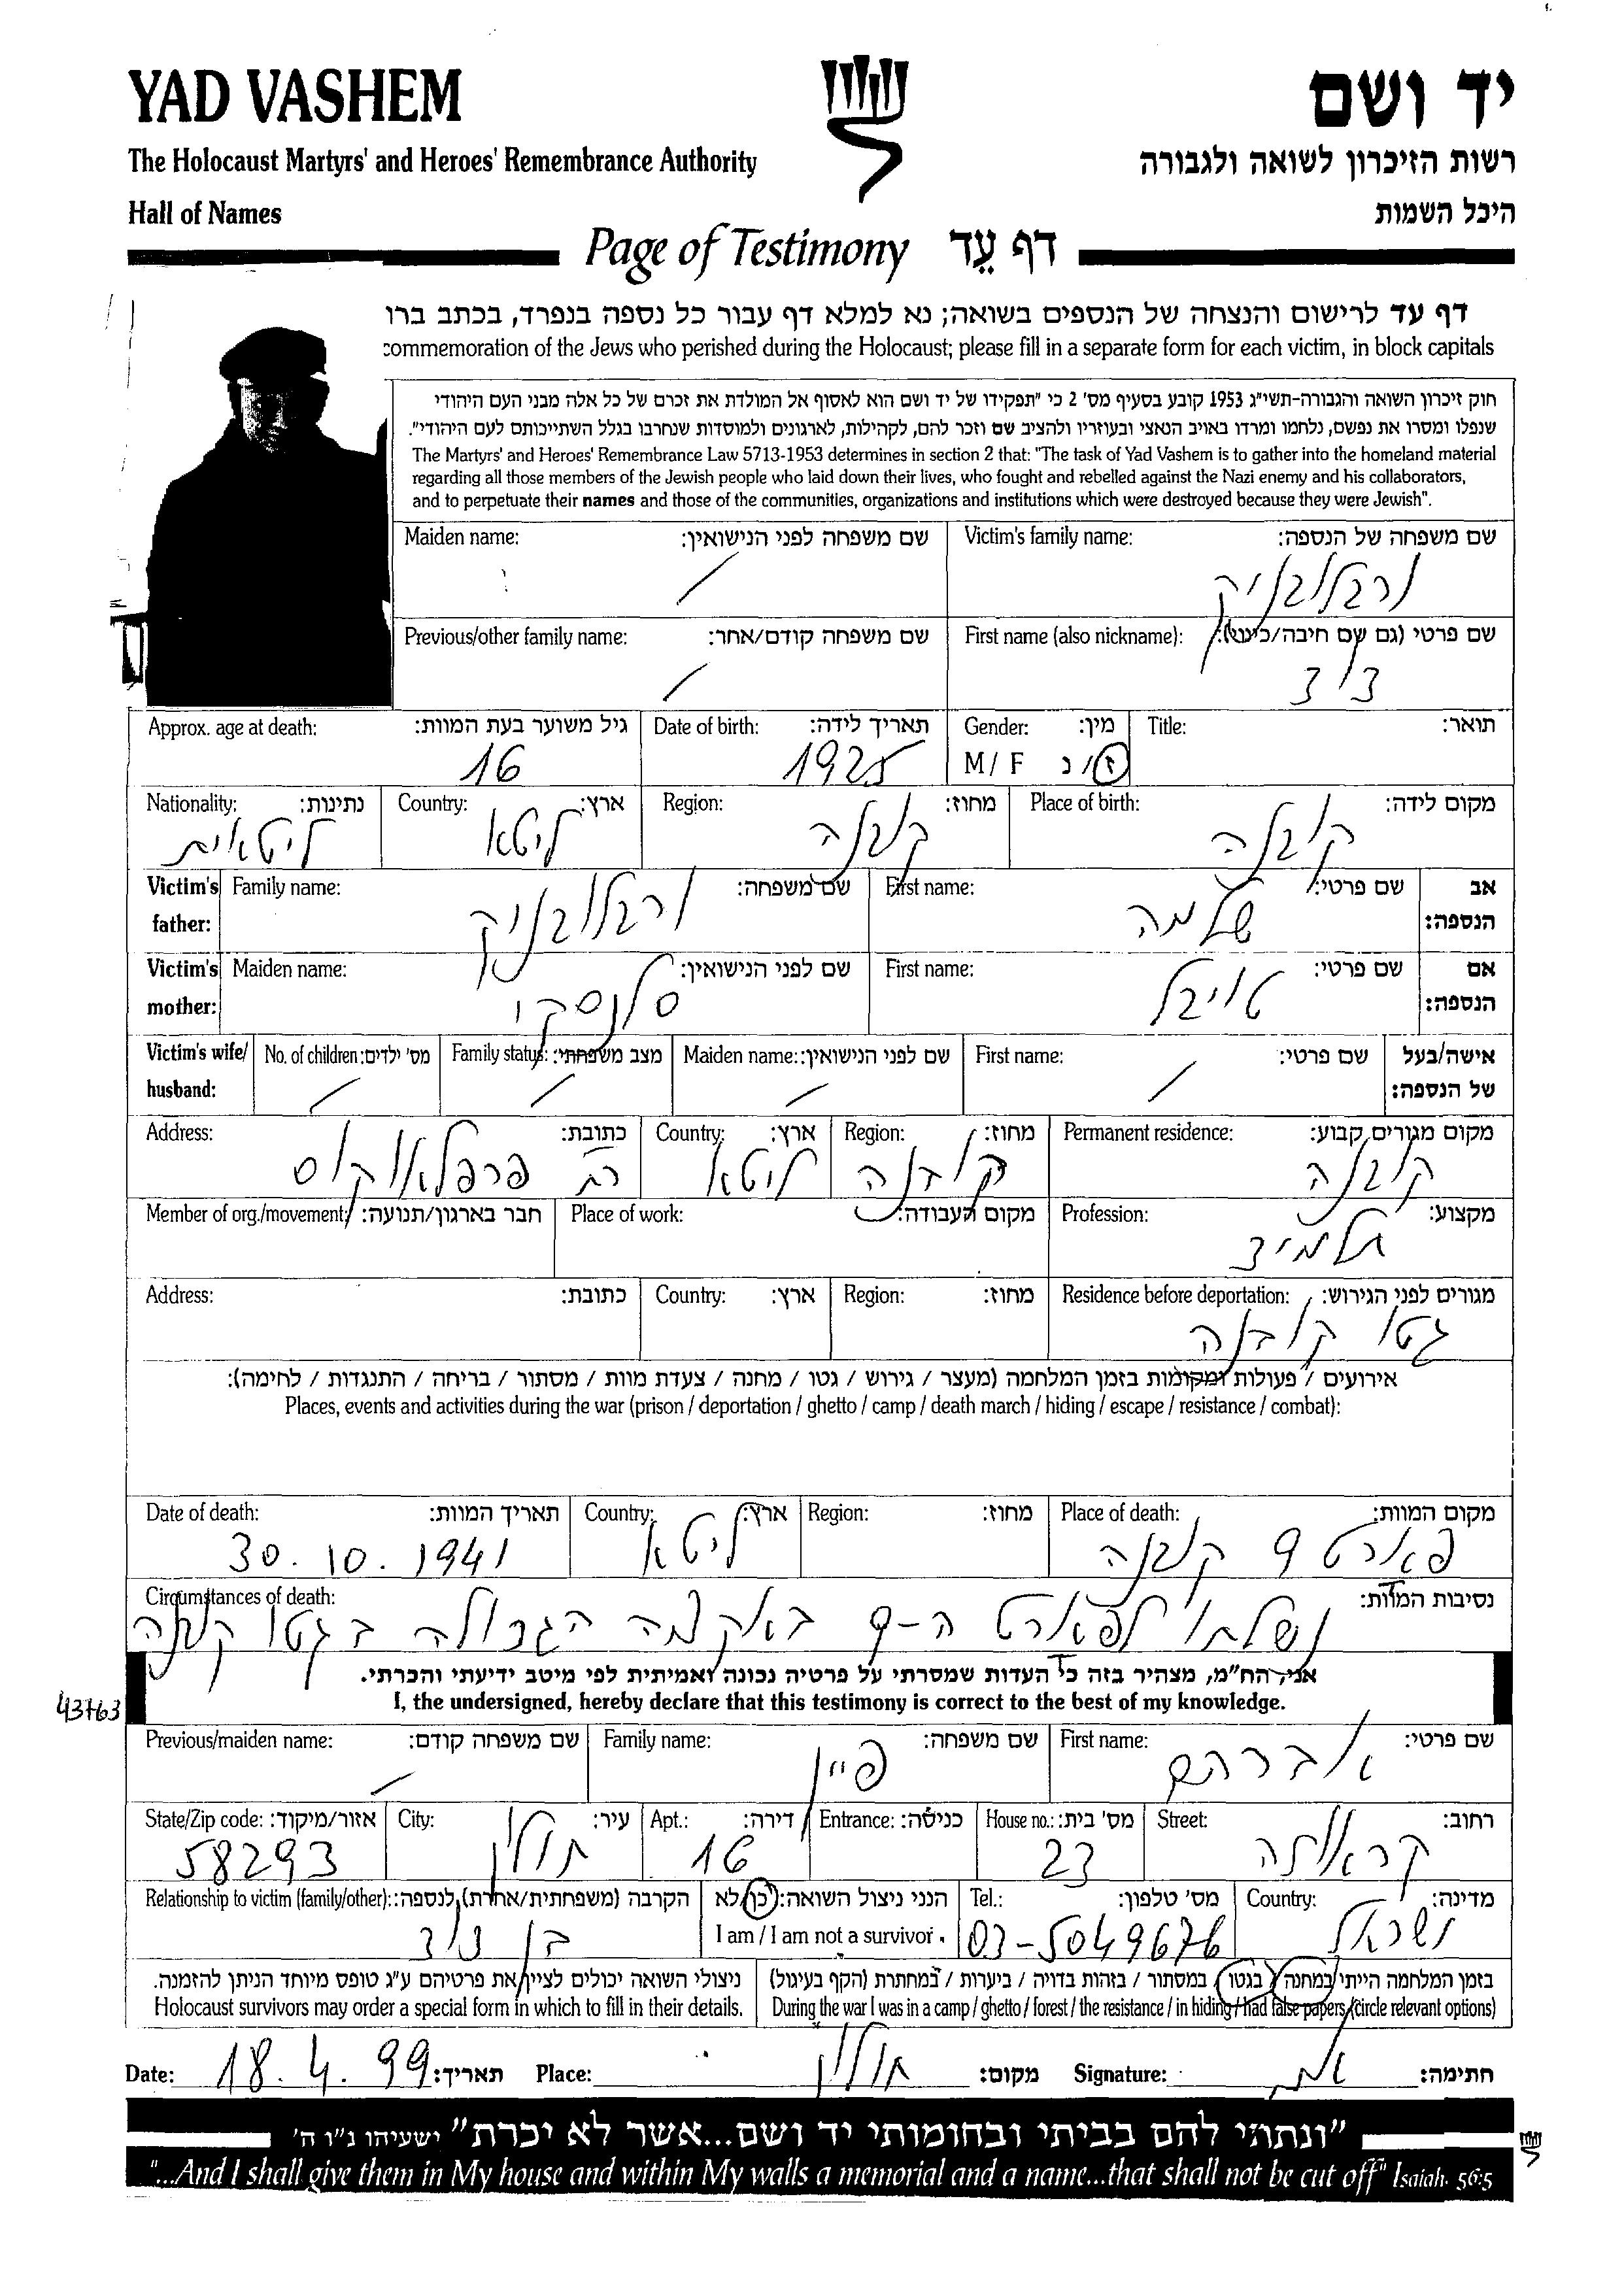 YAD VASHEM
יד ושם
The Holocaust Martyrs' and Heroes' Remembrance Authority
רשות הזיכרון לשואה ולגבורה
Hall of Names
היכל השמות
Page of Testimony דף עֵד
דף עד לרישום והנצחה של הנספים בשואה; נא למלא דף עבור כל נספה בנפרד, בכתב ברו
commemoration of the Jews who perished during the Holocaust; please fill in a separate form for each victim, in block capitals
חוק זיכרון השואה והגבורה-תשי"ג 1953 קובע בסעיף מס' 2 כי "תפקידו של יד ושם הוא לאסוף אל המולדת את זכרם של כל אלה מבני העם היהודי
שנפלו ומסרו את נפשם, נלחמו ומרדו באויב הנאצי ובעוזריו ולהציב שם וזכר להם, לקהילות, לארגונים ולמוסדות שנחרבו בגלל השתייכותם לעם היהודי".
The Martyrs' and Heroes' Remembrance Law 5713-1953 determines in section 2 that: "The task of Yad Vashem is to gather into the homeland material
regarding all those members of the Jewish people who laid down their lives, who fought and rebelled against the Nazi enemy and his collaborators,
and to perpetuate their names and those of the communities, organizations and institutions which were destroyed because they were Jewish".
Maiden name: שם משפחה לפני הנישואין: Victim's family name: שם משפחה של הנספה:
/
Previous/other family name: שם משפחה קודם/אחר: First name (also nickname): שם פרטי (גם שם חיבה/כינוי):
/ דוד
Approx. age at death: גיל משוער בעת המוות: Date of birth: תאריך לידה: Gender: מין: Title: תואר:
16 1925 M / F ז / נ
Nationality: נתינות: Country: ארץ: Region: מחוז: Place of birth: מקום לידה:
ליטאית ליטא קובנה קובנה
Victim's father: Family name: שם משפחה: First name: שם פרטי: אב הנספה:
שלמה
Victim's mother: Maiden name: שם לפני הנישואין: First name: שם פרטי: אם הנספה:
סלנסקי טויבל
Victim's wife/ husband: No. of children: מס' ילדים: Family status: מצב משפחתי: Maiden name: שם לפני הנישואין: First name: שם פרטי: אישה/בעל של הנספה:
/ / / /
Address: כתובת: Country: ארץ: Region: מחוז: Permanent residence: מקום מגורים קבוע:
רח ליטא קובנה קובנה
Member of org./movement: חבר בארגון/תנועה: Place of work: מקום העבודה: Profession: מקצוע:
תלמיד
Address: כתובת: Country: ארץ: Region: מחוז: Residence before deportation: מגורים לפני הגירוש:
גטו קובנה
אירועים / פעולות ומקומות בזמן המלחמה (מעצר / גירוש / גטו / מחנה / צעדת מוות / מסתור / בריחה / התנגדות / לחימה):
Places, events and activities during the war (prison / deportation / ghetto / camp / death march / hiding / escape / resistance / combat):
Date of death: תאריך המוות: Country: ארץ: Region: מחוז: Place of death: מקום המוות:
30.10.1941 ליטא פארט 9 קובנה
Circumstances of death: נסיבות המוות:
נשלחו לפארט ה-9 באקציה הגדולה בגטו קובנה
אני, הח"מ, מצהיר בזה כי העדות שמסרתי על פרטיה נכונה ואמיתית לפי מיטב ידיעתי והכרתי.
I, the undersigned, hereby declare that this testimony is correct to the best of my knowledge.
43763
Previous/maiden name: שם משפחה קודם: Family name: שם משפחה: First name: שם פרטי:
/ פיין אברהם
State/Zip code: אזור/מיקוד: City: עיר: Apt.: דירה: Entrance: כניסה: House no.: מס' בית: Street: רחוב:
58293 חולון 16 23
Relationship to victim (family/other): הקרבה (משפחתית/אחרת) לנספה: הנני ניצול השואה: כן/לא Tel.: מס' טלפון: Country: מדינה:
בן דוד I am / I am not a survivor 03-5049676 ישראל
ניצולי השואה יכולים לציין את פרטיהם ע"ג טופס מיוחד הניתן להזמנה. בזמן המלחמה הייתי במחנה / בגטו / במסתור / בזהות בדויה / ביערות / במחתרת (הקף בעיגול)
Holocaust survivors may order a special form in which to fill in their details. During the war I was in a camp / ghetto / forest / the resistance / in hiding / had false papers (circle relevant options)
Date: 18.4.99 תאריך: Place: חולון מקום: Signature: חתימה:
"ונתתי להם בביתי ובחומותי יד ושם...אשר לא יכרת" ישעיהו נ"ו ה'
"...And I shall give them in My house and within My walls a memorial and a name...that shall not be cut off" Isaiah. 56:5